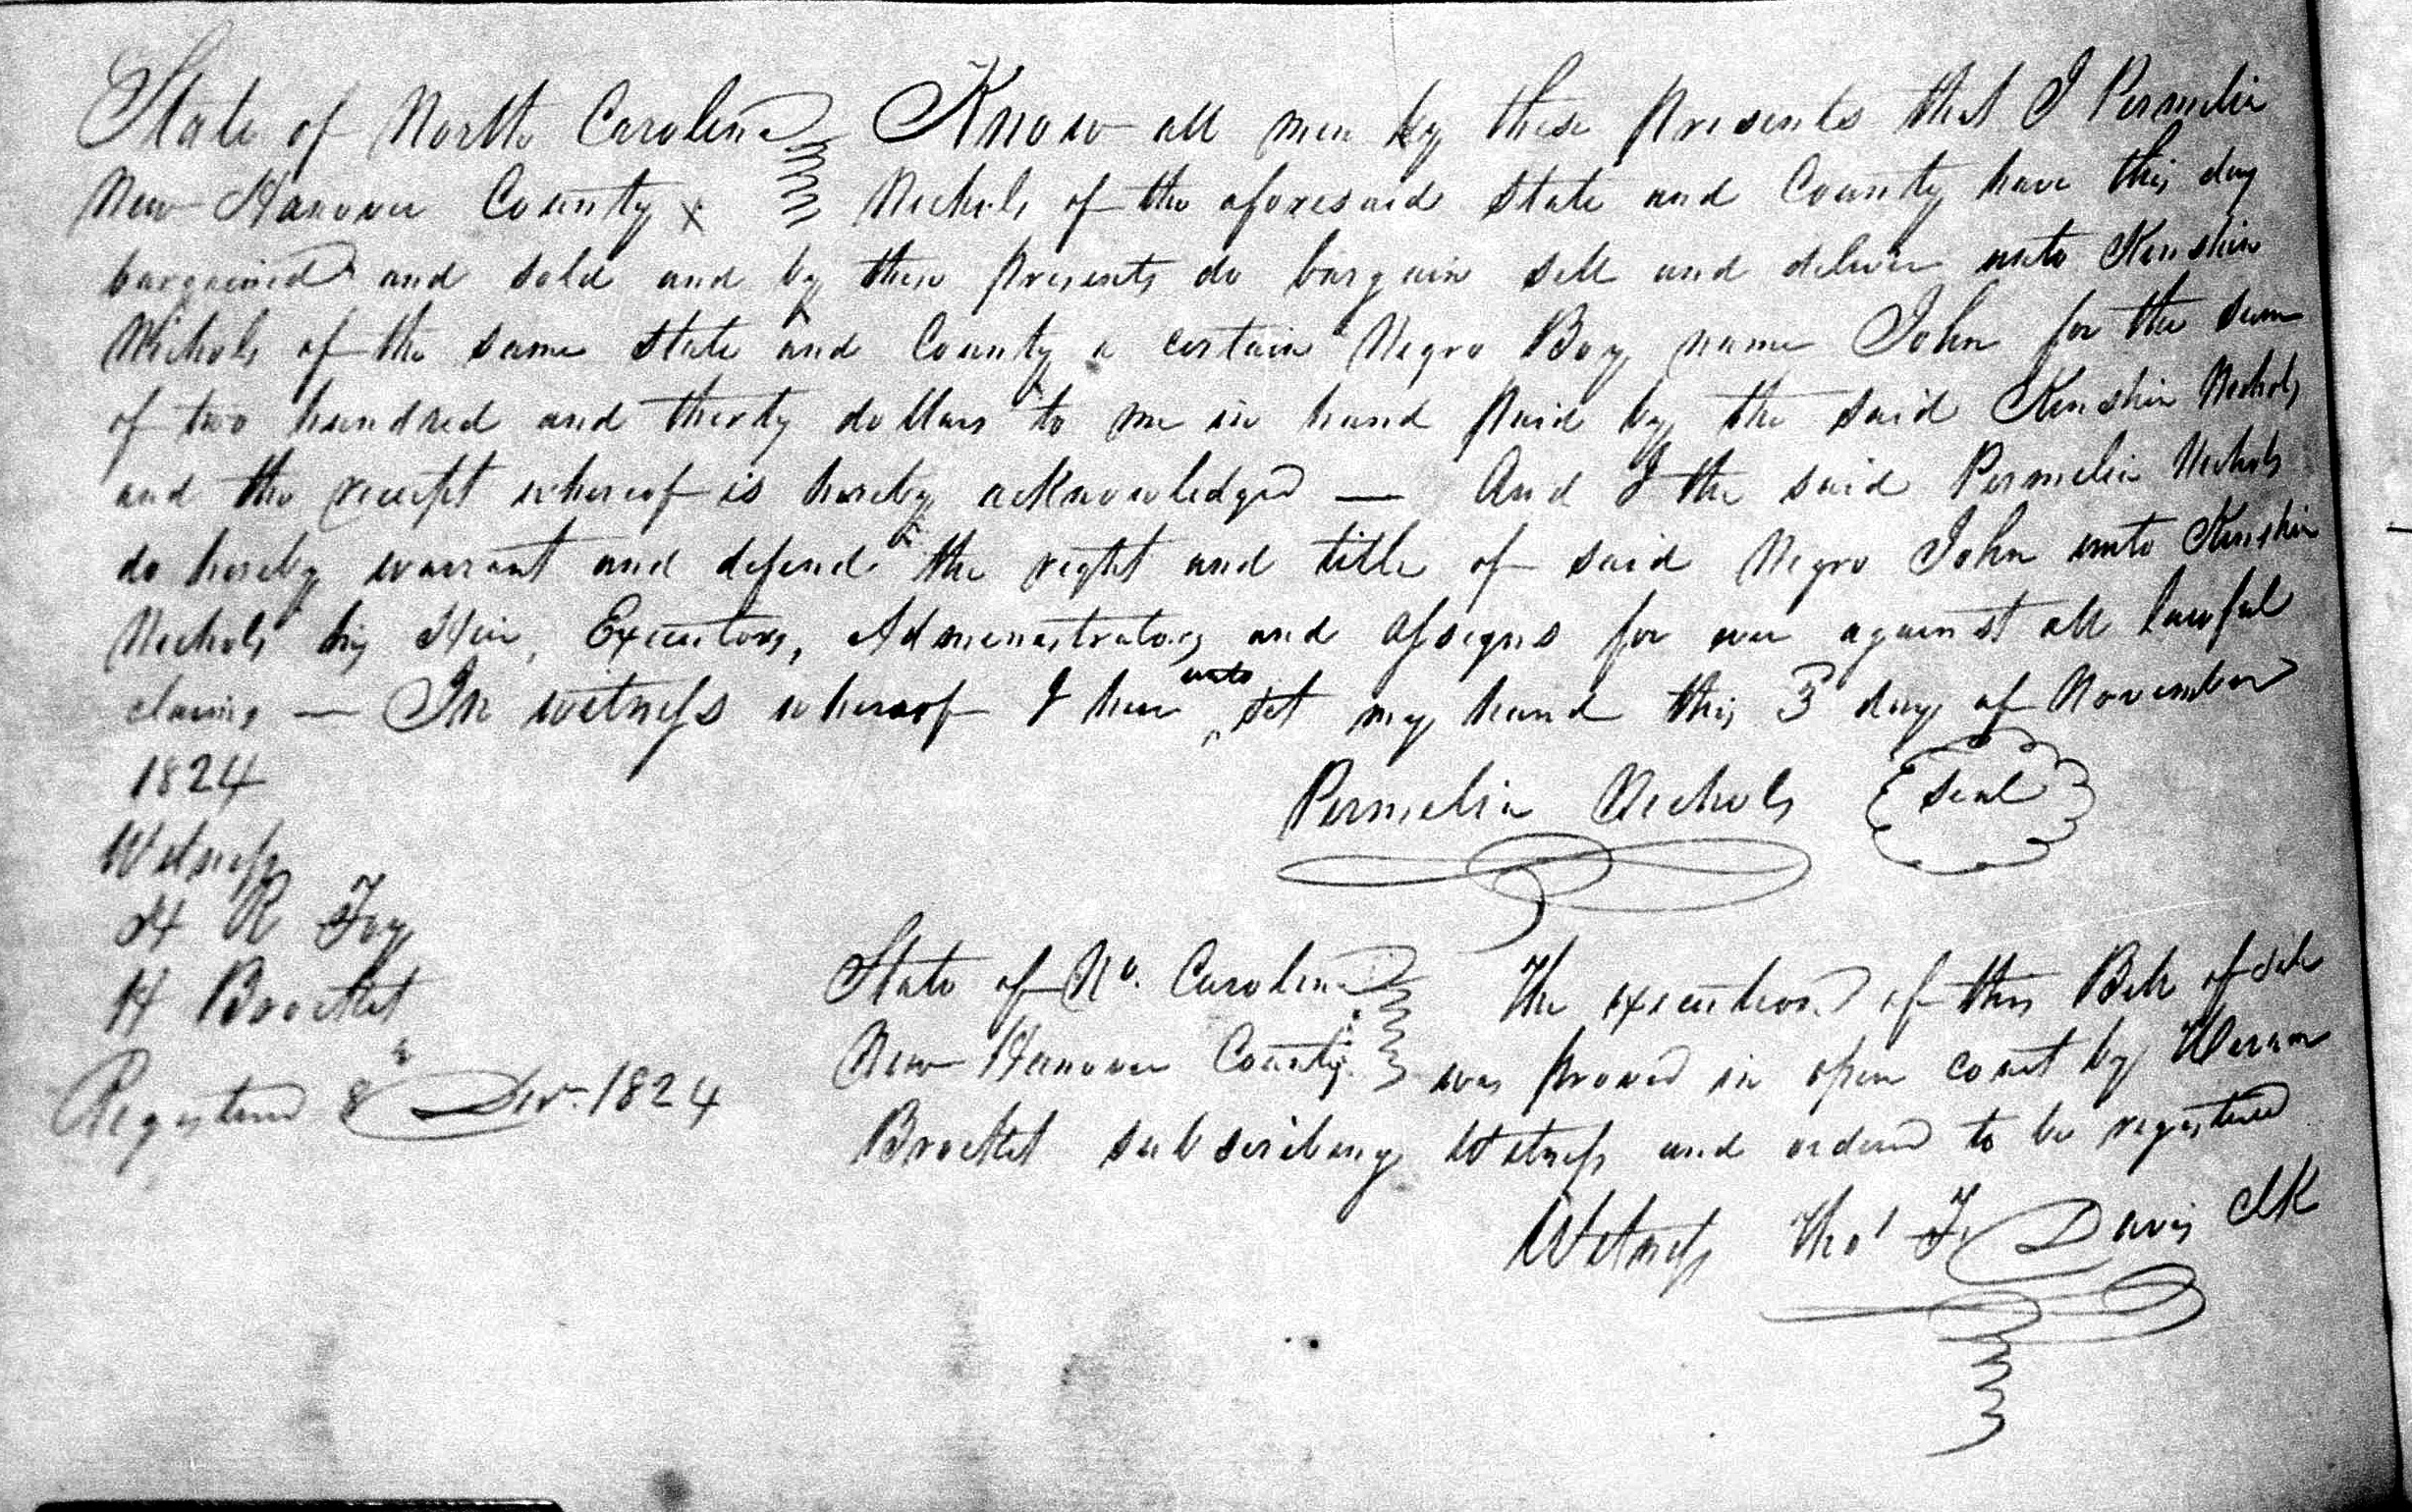 State of North Carolina Know all men by these presents that I Permelia
New Hanover County Nichols of the aforesaid State and County have this day
bargained and sold and by these presents do bargain sell and deliver unto Kinshin
Nichols of the same State and County a certain Negro Boy name John for the sum
of two hundred and thirty dollars to me in hand paid by the said Kinshin Nichols
and the receipt whereof is hereby acknowledged — And I the said Permelia Nichols
do hereby warrant and defend the right and title of said Negro John unto Kinshin
Nichols his Heir, Executors, Administrators and assigns for ever against all lawful
claims — In witness whereof I here unto set my hand this 3 day of November
1824
Permelia Nichols Seal
Witness
H R Foy
H Brockett
Registered 8th Decr. 1824
State of No. Carolina The execution of this Bill of Sale
New Hanover County was proved in open court by
Brockett subscribing Witness and ordered to be registered
Witness Thos F Davis Clk